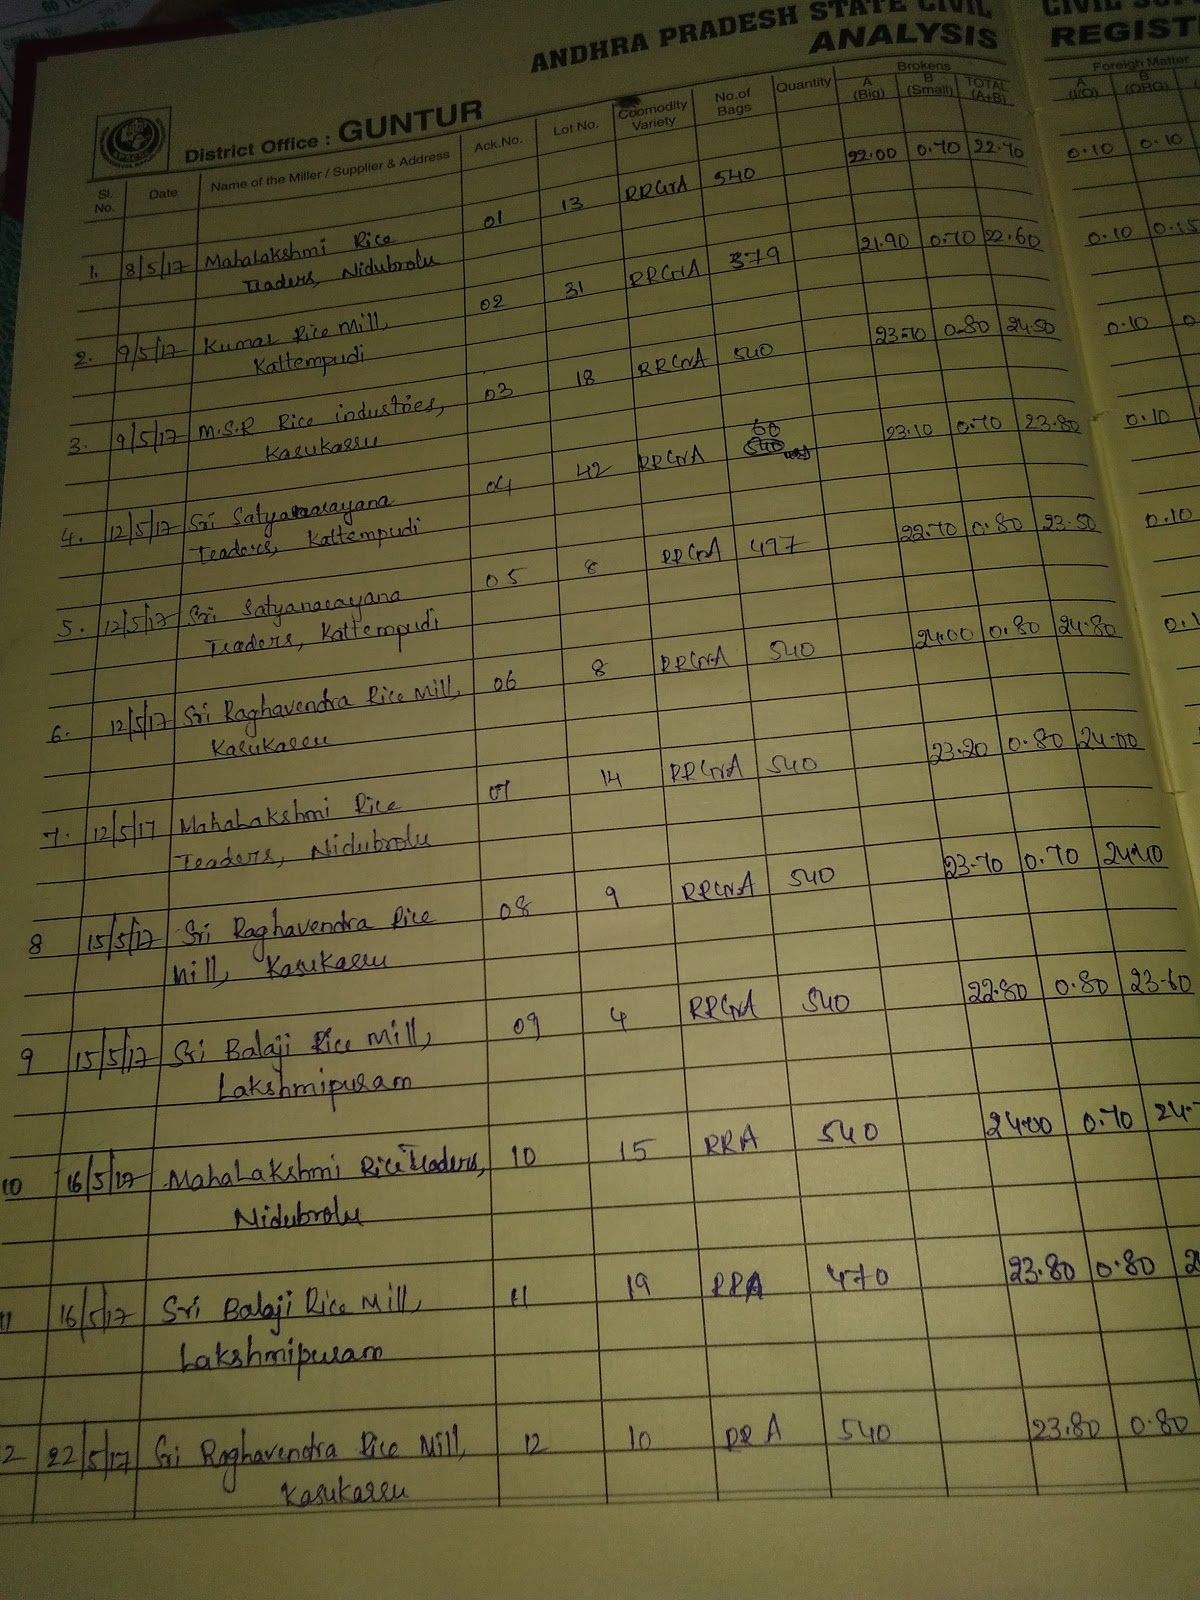 ANDHRA PRADESH STATE CIVIL
CIVIL
ANALYSIS
REGIST
District Office : GUNTUR
Sl. No. Date Name of the Miller / Supplier & Address Ack.No. Lot No. Coomodity Variety No.of Bags Quantity Brokens A (Big) B (Small) TOTAL (A+B) Foreign Matter A (I/O) B (ORG)
1. 8/5/17 Mahalakshmi Rice 01 13 RRGrA 540 22.00 0.70 22.70 0.10 0.10
Traders, Nidubrolu
2. 9/5/17 Kumar Rice Mill, 02 31 RRGrA 379 21.90 0.70 22.60 0.10 0.15
Kattempudi
3. 9/5/17 M.S.R Rice industries, 03 18 RRGrA 540 23.70 0.80 24.50 0.10
Kasukarru
4. 12/5/17 Sri Satyanarayana 04 42 RRGrA 60 23.10 0.70 23.80 0.10
Traders, Kattempudi
5. 12/5/17 Sri Satyanarayana 05 8 RRGrA 497 22.70 0.80 23.50 0.10
Traders, Kattempudi
6. 12/5/17 Sri Raghavendra Rice Mill, 06 8 RRGrA 540 24.00 0.80 24.80
Kasukarru
7. 12/5/17 Mahalakshmi Rice 07 14 RRGrA 540 23.20 0.80 24.00
Traders, Nidubrolu
8 15/5/17 Sri Raghavendra Rice 08 9 RRGrA 540 23.70 0.70 24.40
Mill, Kasukarru
9 15/5/17 Sri Balaji Rice Mill, 09 4 RRGrA 540 22.80 0.80 23.60
Lakshmipuram
10 16/5/17 Mahalakshmi Rice Traders, 10 15 RRA 540 24.00 0.70
Nidubrolu
11 16/5/17 Sri Balaji Rice Mill, 11 19 RRA 470 23.80 0.80
Lakshmipuram
2 22/5/17 Sri Raghavendra Rice Mill, 12 10 RRA 540 23.80 0.80
Kasukarru